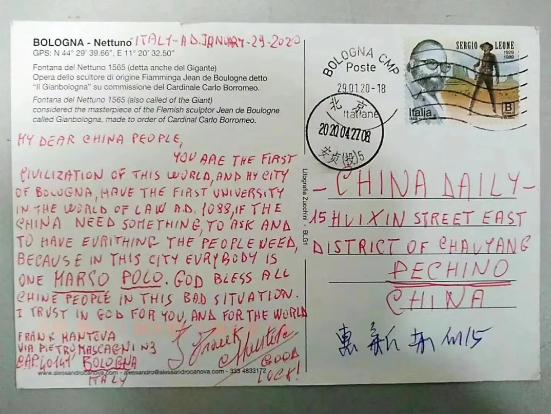 BOLOGNA - Nettuno ITALY-A.D. JANUARY-29-2020
GPS: N 44° 29' 39.66", E 11° 20' 32.50"
Fontana del Nettuno 1565 (detta anche del Gigante)
Opera dello scultore di origine Fiamminga Jean de Boulogne detto
"Il Gianbologna" su commissione del Cardinale Carlo Borromeo.
Fontana del Nettuno 1565 (also called of the Giant)
considered the masterpiece of the Flemish sculptor Jean de Boulogne
called Gianbologna, made to order of Cardinal Carlo Borromeo.
MY DEAR CHINA PEOPLE,
YOU ARE THE FIRST
CIVILIZATION OF THIS WORLD, AND MY CITY
OF BOLOGNA, HAVE THE FIRST UNIVERSITY
IN THE WORLD OF LAW A.D. 1088, IF THE
CHINA NEED SOMETHING, TO ASK AND
TO HAVE EVRITHING THE PEOPLE NEED,
BECAUSE IN THIS CITY EVRYBODY IS
ONE MARCO POLO. GOD BLESS ALL
CHINE PEOPLE IN THIS BAD SITUATION.
I TRUST IN GOD FOR YOU, AND FOR THE WORLD
FRANK MANTOVA
VIA PIETRO MASCAGNI N3
CAP. 40141 BOLOGNA
ITALY
GOOD
LUCK!
www.alessandrocanova.com - alessandro@alessandrocanova.com - 333 4833172
Litografia Zucchini - BLG1
BOLOGNA CMP
Poste
29.01.20-18
Italiane
北京
2020.04.27.08
(投)5
SERGIO LEONE
1929
1989
Italia
B
-CHINA DAILY-
15 HUIXIN STREET EAST
DISTRICT OF CHAOYANG
PECHINO
CHINA
惠新东 15